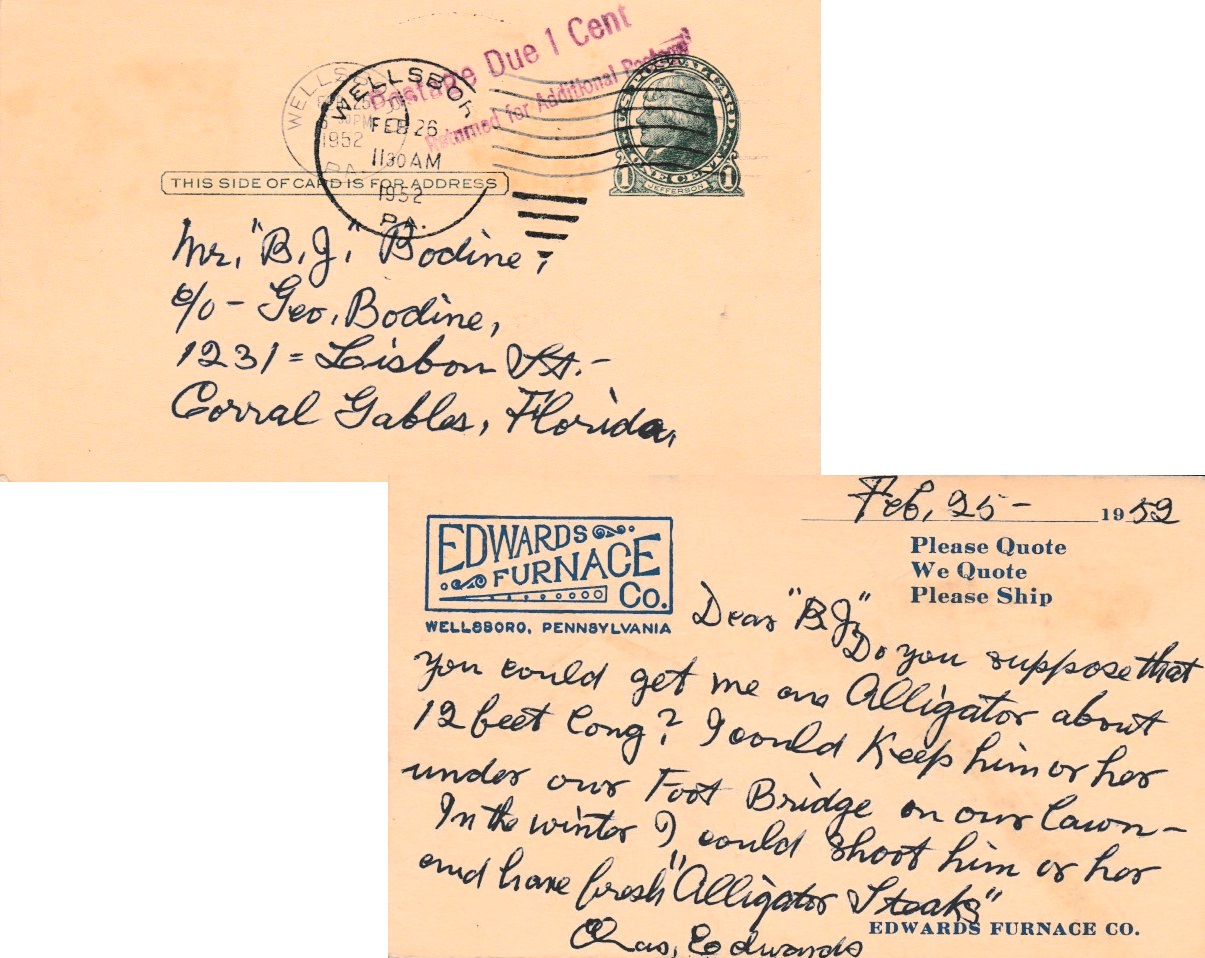 Postage Due 1 Cent
Returned for Additional Postage
WELLSBORO
FEB 25
PM
1952
PA.
WELLSBORO
FEB 26
11 30 AM
1952
PA.
U.S. POSTAL CARD
ONE CENT
1 JEFFERSON 1
THIS SIDE OF CARD IS FOR ADDRESS
Mr. "B.J." Bodine,
c/o - Geo. Bodine,
1231 = Lisbon St. -
Corral Gables, Florida,
Feb, 25 - 1952
EDWARDS
FURNACE
Co.
WELLSBORO, PENNSYLVANIA
Please Quote
We Quote
Please Ship
Dear "B.J."
Do you suppose that
you could get me one Alligator about
12 feet long? I could Keep him or her
under our Foot Bridge on our lawn -
In the winter I could shoot him or her
and have fresh "Alligator Steaks"
EDWARDS FURNACE CO.
Chas, Edwards